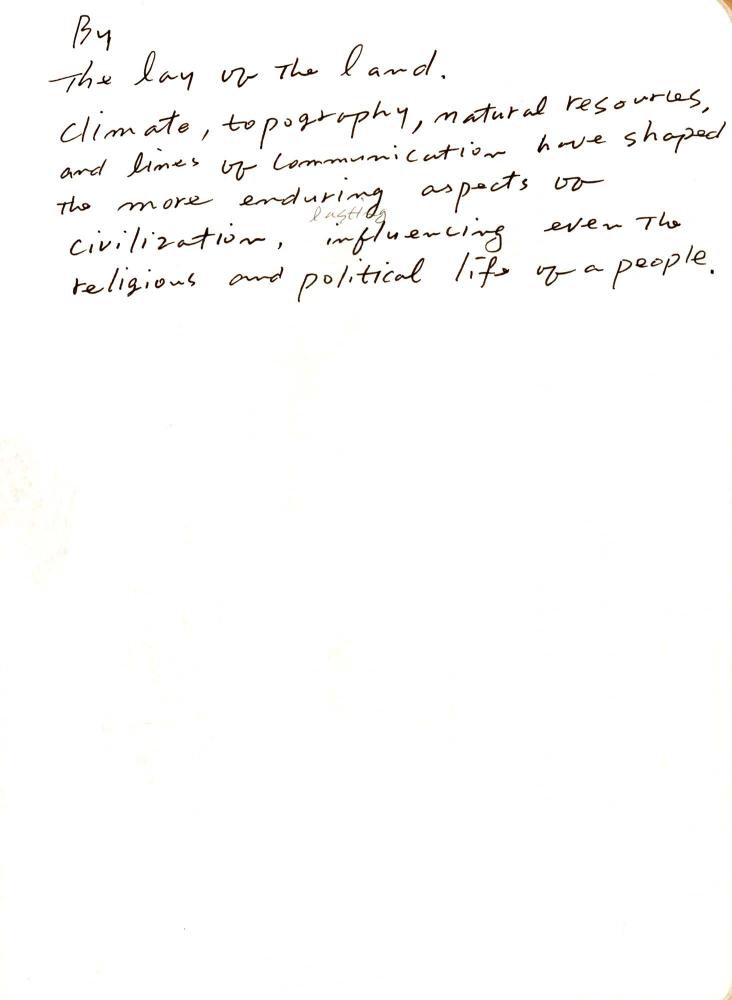 By
The lay of the land.
Climate, topography, natural resources,
and lines of communication have shaped
the more enduring aspects of
lasting
civilization, influencing even the
religious and political life of a people.